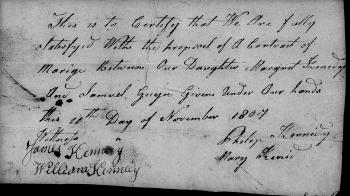 This is to Certify that We Are fully
Satisfyd With the proposal of A Contract of
Marige Between Our Daughter Margret Kennedy
And Samuel Guyn Givens Under Our hands
this 20th Day of November 1807
Witness
Philip Kennedy
James Kennedy
Mary Kened
William Kennedy